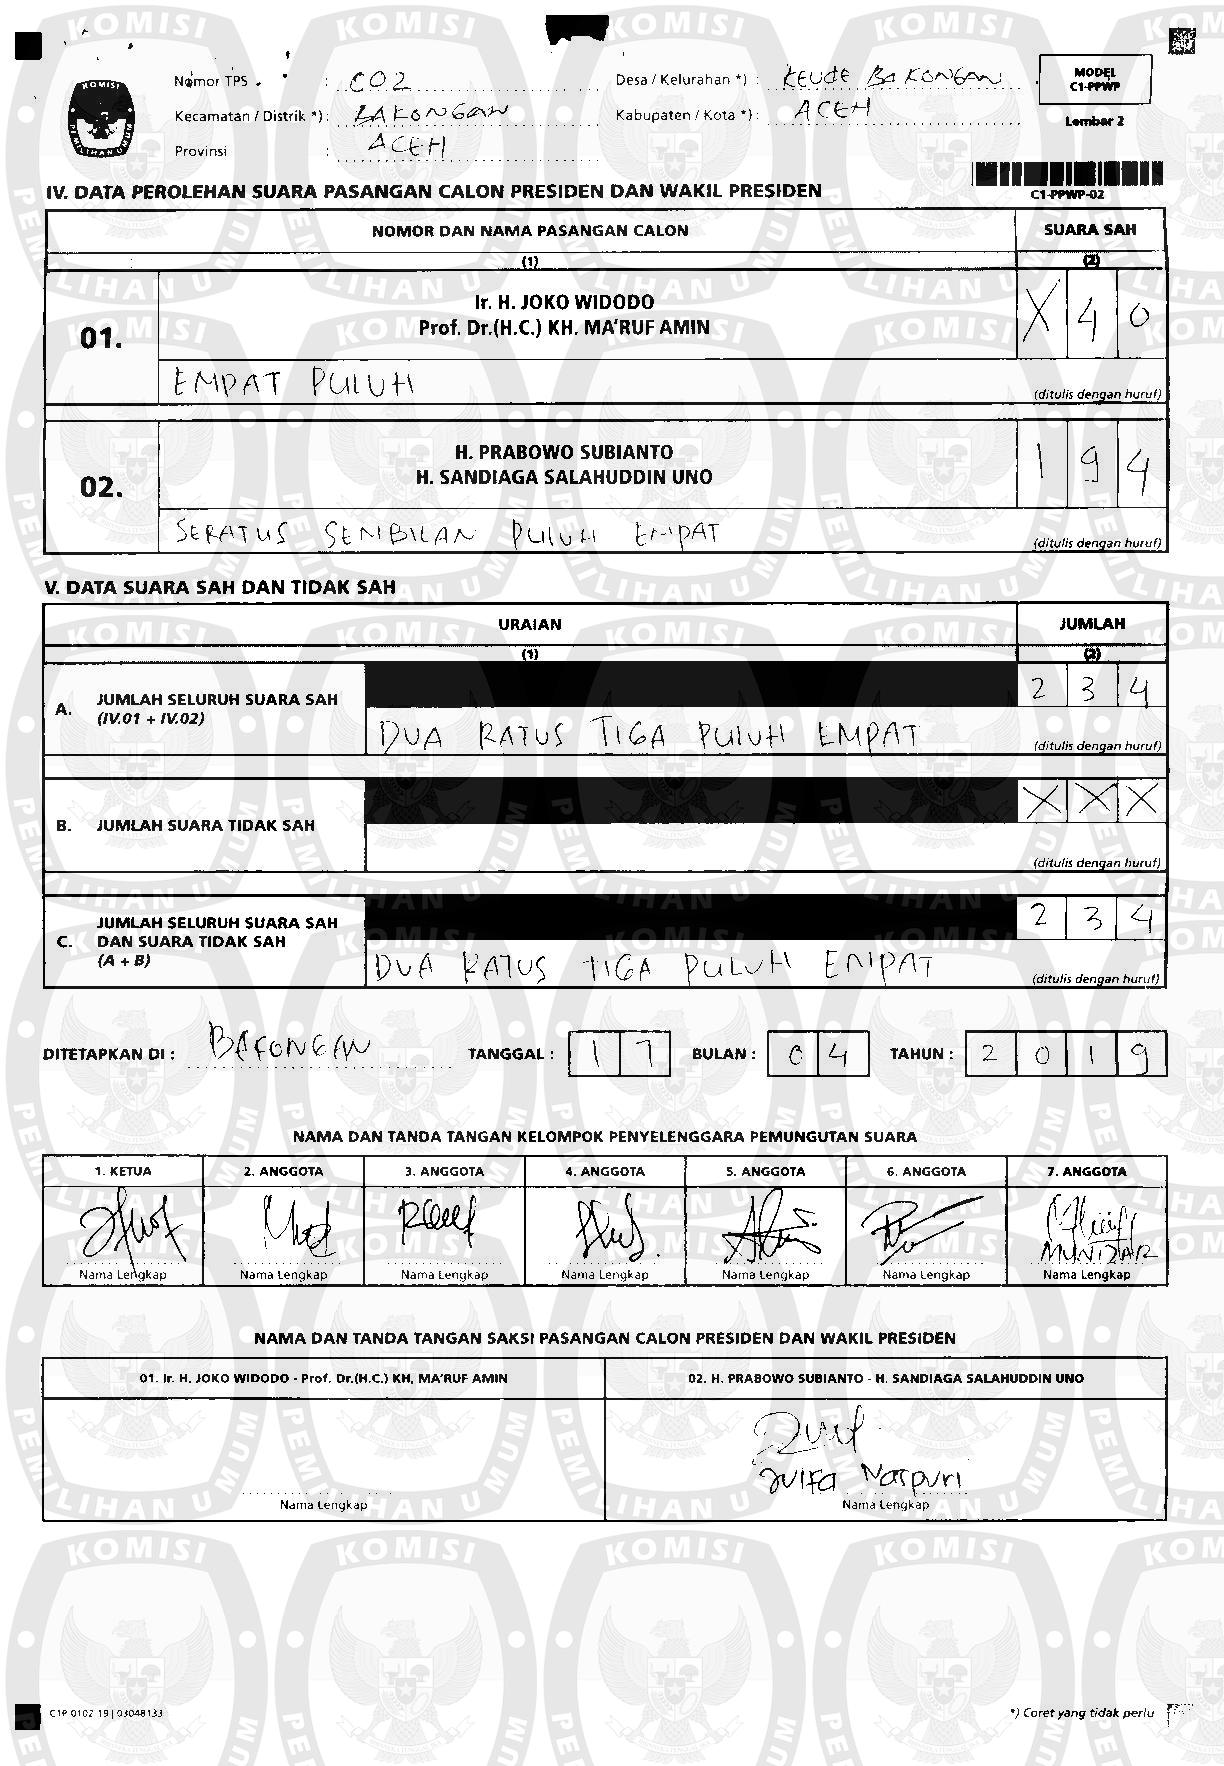 Nomor TPS : 002
Desa / Kelurahan *) : KEUDE BAKONGAN
MODEL
C1-PPWP
Kecamatan / Distrik *) : BAKONGAN
Kabupaten / Kota *) : ACEH
Lembar 2
Provinsi : ACEH
C1-PPWP-02
IV. DATA PEROLEHAN SUARA PASANGAN CALON PRESIDEN DAN WAKIL PRESIDEN
NOMOR DAN NAMA PASANGAN CALON SUARA SAH
(1) (2)
01. Ir. H. JOKO WIDODO
Prof. Dr.(H.C.) KH. MA'RUF AMIN
X 4 0
EMPAT PULUH
(ditulis dengan huruf)
02. H. PRABOWO SUBIANTO
H. SANDIAGA SALAHUDDIN UNO
1 9 4
SERATUS SEMBILAN PULUH EMPAT
(ditulis dengan huruf)
V. DATA SUARA SAH DAN TIDAK SAH
URAIAN JUMLAH
(1) (2)
A. JUMLAH SELURUH SUARA SAH
(IV.01 + IV.02)
2 3 4
DUA RATUS TIGA PULUH EMPAT
(ditulis dengan huruf)
B. JUMLAH SUARA TIDAK SAH
X X X
(ditulis dengan huruf)
C. JUMLAH SELURUH SUARA SAH
DAN SUARA TIDAK SAH
(A + B)
2 3 4
DUA RATUS TIGA PULUH EMPAT
(ditulis dengan huruf)
DITETAPKAN DI : BAKONGAN TANGGAL : 1 7 BULAN : 0 4 TAHUN : 2 0 1 9
NAMA DAN TANDA TANGAN KELOMPOK PENYELENGGARA PEMUNGUTAN SUARA
1. KETUA 2. ANGGOTA 3. ANGGOTA 4. ANGGOTA 5. ANGGOTA 6. ANGGOTA 7. ANGGOTA
MUNIZAR
Nama Lengkap Nama Lengkap Nama Lengkap Nama Lengkap Nama Lengkap Nama Lengkap Nama Lengkap
NAMA DAN TANDA TANGAN SAKSI PASANGAN CALON PRESIDEN DAN WAKIL PRESIDEN
01. Ir. H. JOKO WIDODO - Prof. Dr.(H.C.) KH. MA'RUF AMIN
02. H. PRABOWO SUBIANTO - H. SANDIAGA SALAHUDDIN UNO
Nama Lengkap Nama Lengkap
C1P 0102 19 | 03048133
*) Coret yang tidak perlu